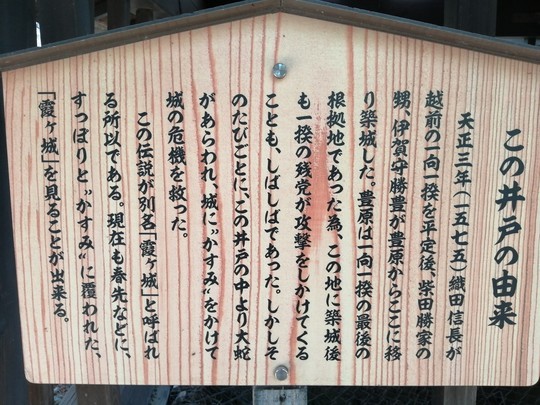 この井戸の由来
天正三年(一五七五)織田信長が
越前の一向一揆を平定後、柴田勝家の
甥、伊賀守勝豊が豊原からここに移
り築城した。豊原は一向一揆の最後の
根拠地であった為、この地に築城後
も一揆の残党が攻撃をしかけてくる
ことも、しばしばであった。しかしそ
のたびごとに、この井戸の中より大蛇
があらわれ、城に“かすみ”をかけて
城の危機を救った。
この伝説が別名「霞ヶ城」と呼ばれ
る所以である。現在も春先などに、
すっぽりと“かすみ”に覆われた、
「霞ヶ城」を見ることが出来る。